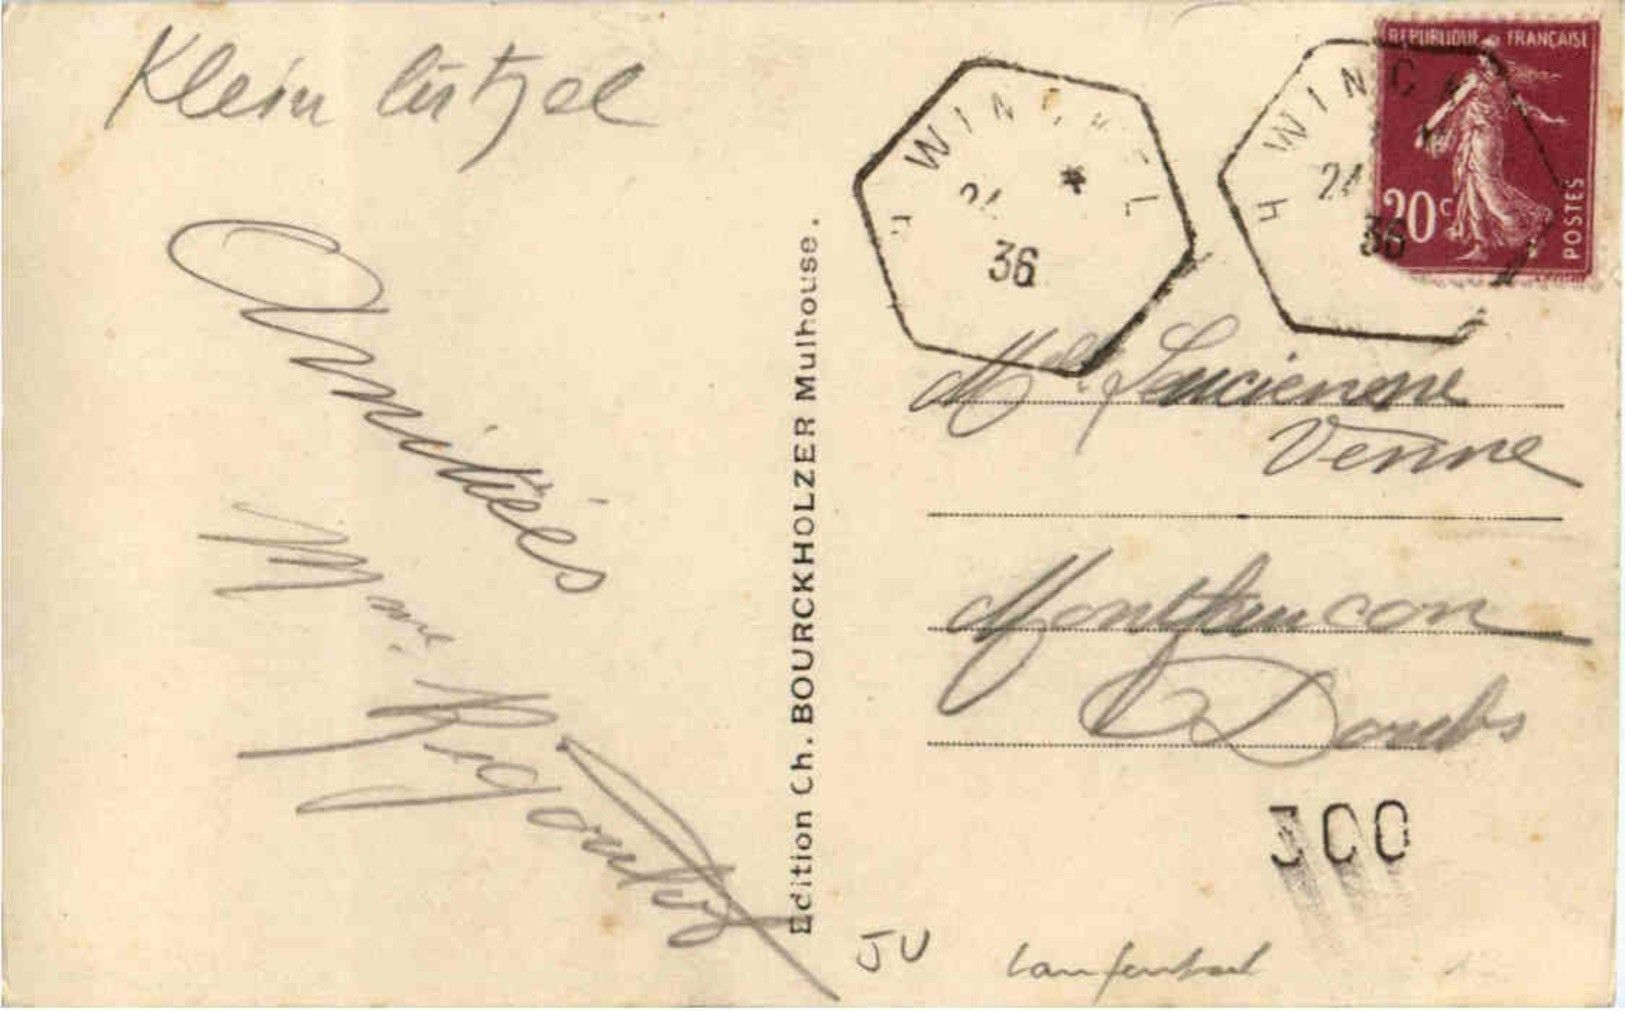 Klein lützel
Amitiés
Mme Rigoulot
Edition Ch. BOURCKHOLZER Mulhouse.
WIN
36
4 WINC
21
36
REPUBLIQUE FRANÇAISE
20c
POSTES
Mlle Lucienne
Venne
Montfaucon
Doubs
300
JU
Laufental